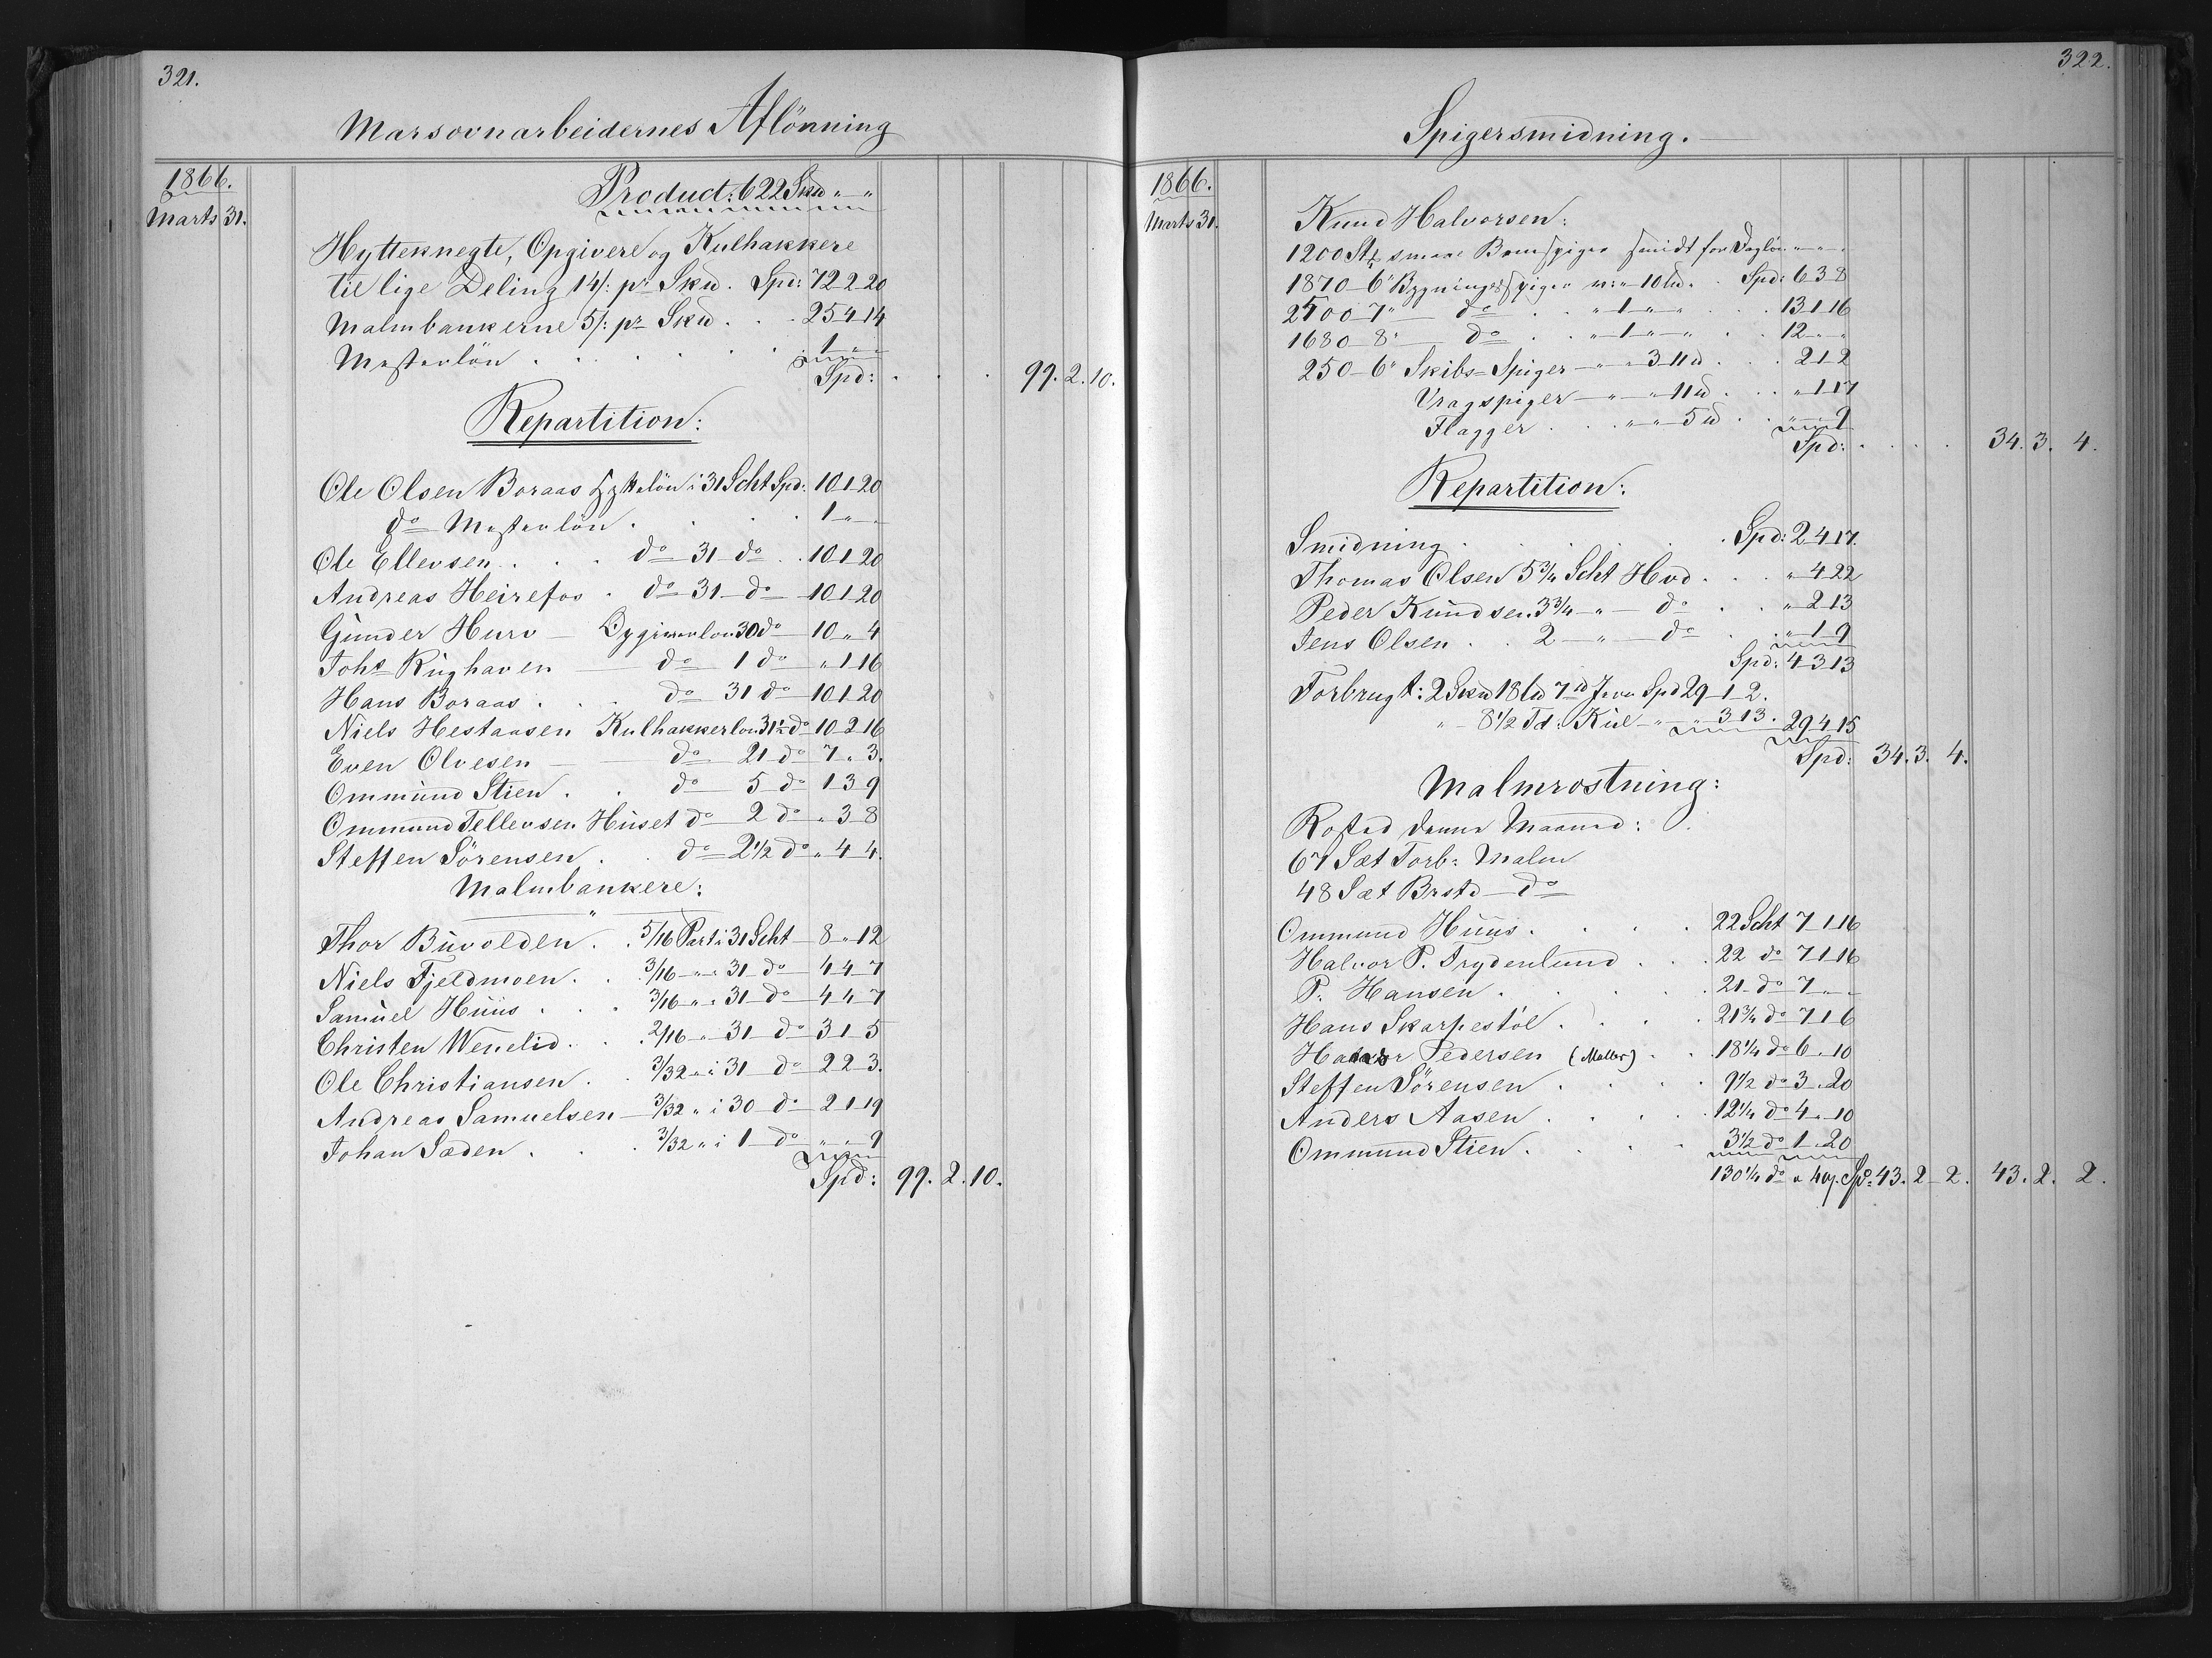 321.
Marsovnarbeidernes Aflönning
1866.
Marts 31.
Product: 622 Skd „ „
Hytteknegte, Opgivere og Kulhakkere
til lige Deling 14/: pr Skd. Spd: 72-2-20
Malmbankerne 5/: pr Skd . . . 25-4-14
Mesterlön . . . . . . 1 „ „
Spd: . . . 99. 2. 10.
Repartition:
Ole Olsen Boraas Hytteløn i 31 Scht Spd: 10-1-20
do Mesterlön . . . . 1 „ „
Ole Ellevsen . . . do 31 do . . 10-1-20
Andreas Heirefos . do 31 do 10-1-20
Gunder Hurv Opgiverløn 30 do 10 „ 4
Johs Rughaven do 1 do „ 1-16
Hans Boraas . . . do 31 do 10-1-20
Niels Hestaasen Kulhakkerløn 31½ do 10-2-16
Even Olvesen do 21 do 7 „ 3.
Ommund Stien . . do 5 do 1-3-9
Ommund Tellevsen Huset do 2 do „ 3-8
Steffen Sörensen . . do 2½ do „ 4-4.
Malmbankere:
Thor Buvolden . . 5/16 Part i 31 Scht 8 „ 12
Niels Fjeldmoen . . 3/16 „ „ 31 do 4-4-7
Samuel Huus . . . 3/16 „ „ 31 do 4-4-7
Christen Wenelid . . 2/16 „ 31 do 3-1-5
Ole Christiansen . . 3/32 „ i 31 do 2-2-3.
Andreas Samuelsen 3/32 „ i 30 do 2-1-19
Johan Sæden . . . 3/32 „ i 1 do „ „ 9
Spd: 99. 2. 10.
322.
Spigersmidning.
1866.
Marts 31.
Knud Halvorsen:
1200 Stk smaa Bomspiger smidt for Dagløn „ „ „
1870 6" Bygningsspiger „ 10 d. . Spd: 6-3-8
2500 7" do . . „ 1 „ „ . . 13-1-16
1680 8" do . . „ 1 „ „ . . 12 „ „
250 6" Skibs-Spiger „ „ 3-11 d . . 2-1-2
Vragspiger „ „ 11 d . . „ 1-17
Flagger . . „ „ 5 d . . „ „ 9
Spd: . . . . 34. 3. 4.
Repartition:
Smidning . . . . . Spd: 2-4-17.
Thomas Olsen 5¾ Scht Hvd . . . „ 4-22
Peder Knudsen 3¾ „ do . . „ 2-13
Jens Olsen . . 2 „ do . . „ 1-9
Spd: 4-3-13
Forbrugt: 2 Skd 18 Ld 7 d Jern Spd 29-1-2.
„ 8½ Td: Kul „ „ 3-13. 29-4-15
Spd: 34. 3. 4.
Malmrostning:
Rosted denne Maaned:
67 Sæt Torb: Malm
48 Sæt Brstd do
Ommund Huus . . . . 22 Scht 7-1-16
Halvor P. Frydenlund . . . 22 do 7-1-16
P. Hansen . . . . . 21 do 7 „ „
Hans Skarpestöl . . . . 21¾ do 7-1-6
Halvor Pedersen (Møller) . . 18¼ do 6 „ 10
Steffen Sörensen . . . . 9½ do 3 „ 20
Anders Aasen . . . . 12¼ do 4 „ 10
Ommund Stien . . . . 3½ do 1 „ 20
130¼ do a 40/. Spd: 43. 2-2. 43. 2. 2.